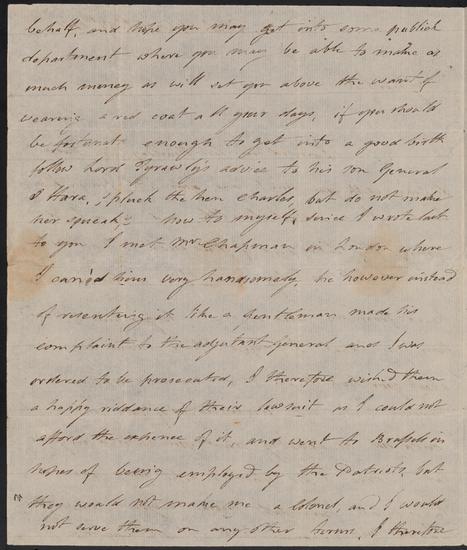 behalf, and hope you may get into some publick
department where you may be able to make as
much money as will set you above the want of
wearing a red coat all your days, if you should
be fortunate enough to get into a good birth
follow Lord Tyrawly's advice to his son General
O Hara, "pluck the hen Charles, but do not make
her squeak" now to myself, since I wrote last
to you I met Mr Chapman in London where
I caned him very handsomely, he however instead
of resenting it like a gentleman made his
complaint to the adjutant general and I was
ordered to be prosecuted, I therefore wished them
a happy riddance of their lawsuit as I could not
afford the expence of it, and went to Brussels in
hopes of being employed by the Patriots, but
they would not make me a Colonel, and I would
not serve them on any other terms, I therefore